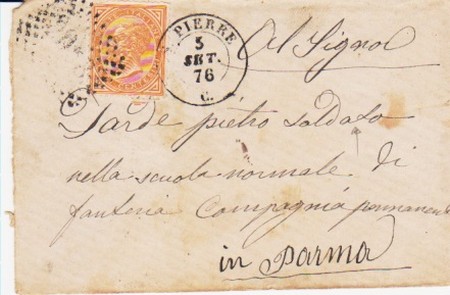 PIERRE
5
SET.
76
C.
Al Signor
Tarde pietro soldato
nella scuola normale di
fanteria Compagnia permanente
in Parma